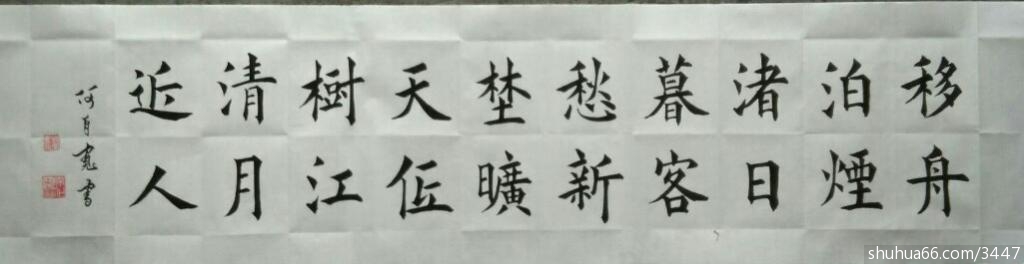 移舟
泊煙
渚日
暮客
愁新
埜曠
天低
樹江
清月
近人
何自書
shuhua66.com/3447